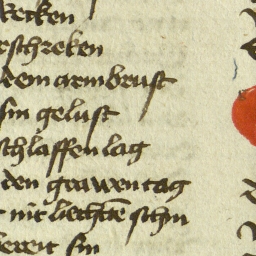 Recken
rschreken
dem armbrust
sin gelust
schlaffen lag
den grawen tag
nit liechtē schin
bereit sin